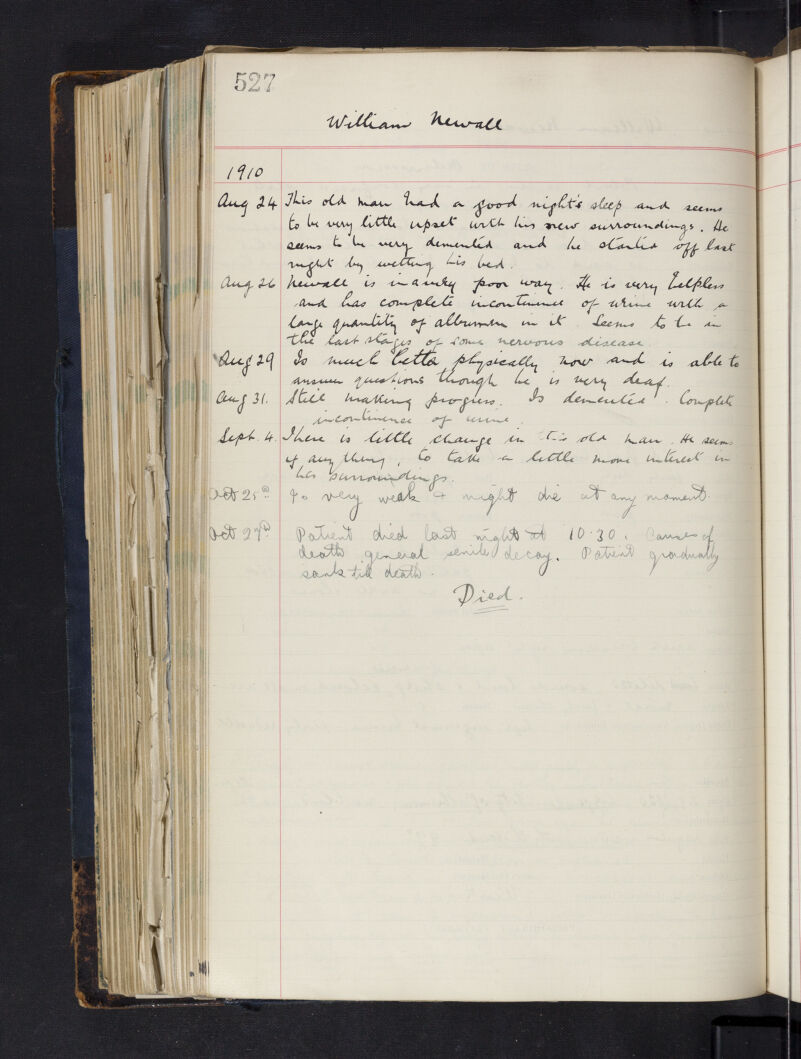 527
William Newall
1910
Aug 24 This old man had a good night's sleep and seems
to be very little upset with his new surroundings. He
seems to be very demented and he started off last
night by wetting his bed.
Aug 26 Newall is in a very poor way. He is very helpless
and has complete incontinence of urine with a
large quantity of albumen in it. Seems to be in
the last stages of some nervous disease.
Aug 29 Is much better physically now and is able to
answer questions though he is very deaf.
Aug 31. Still making progress. Is demented. Complete
incontinence of urine.
Sept. 4. There is little change in this old man. He seems
if anything, to take a little more interest in
his surroundings.
Oct 25th Is very weak & might die at any moment.
Oct 27th Patient died last night at 10.30. Causes of
death general senile decay. Patient gradually
sank till death.
Died.